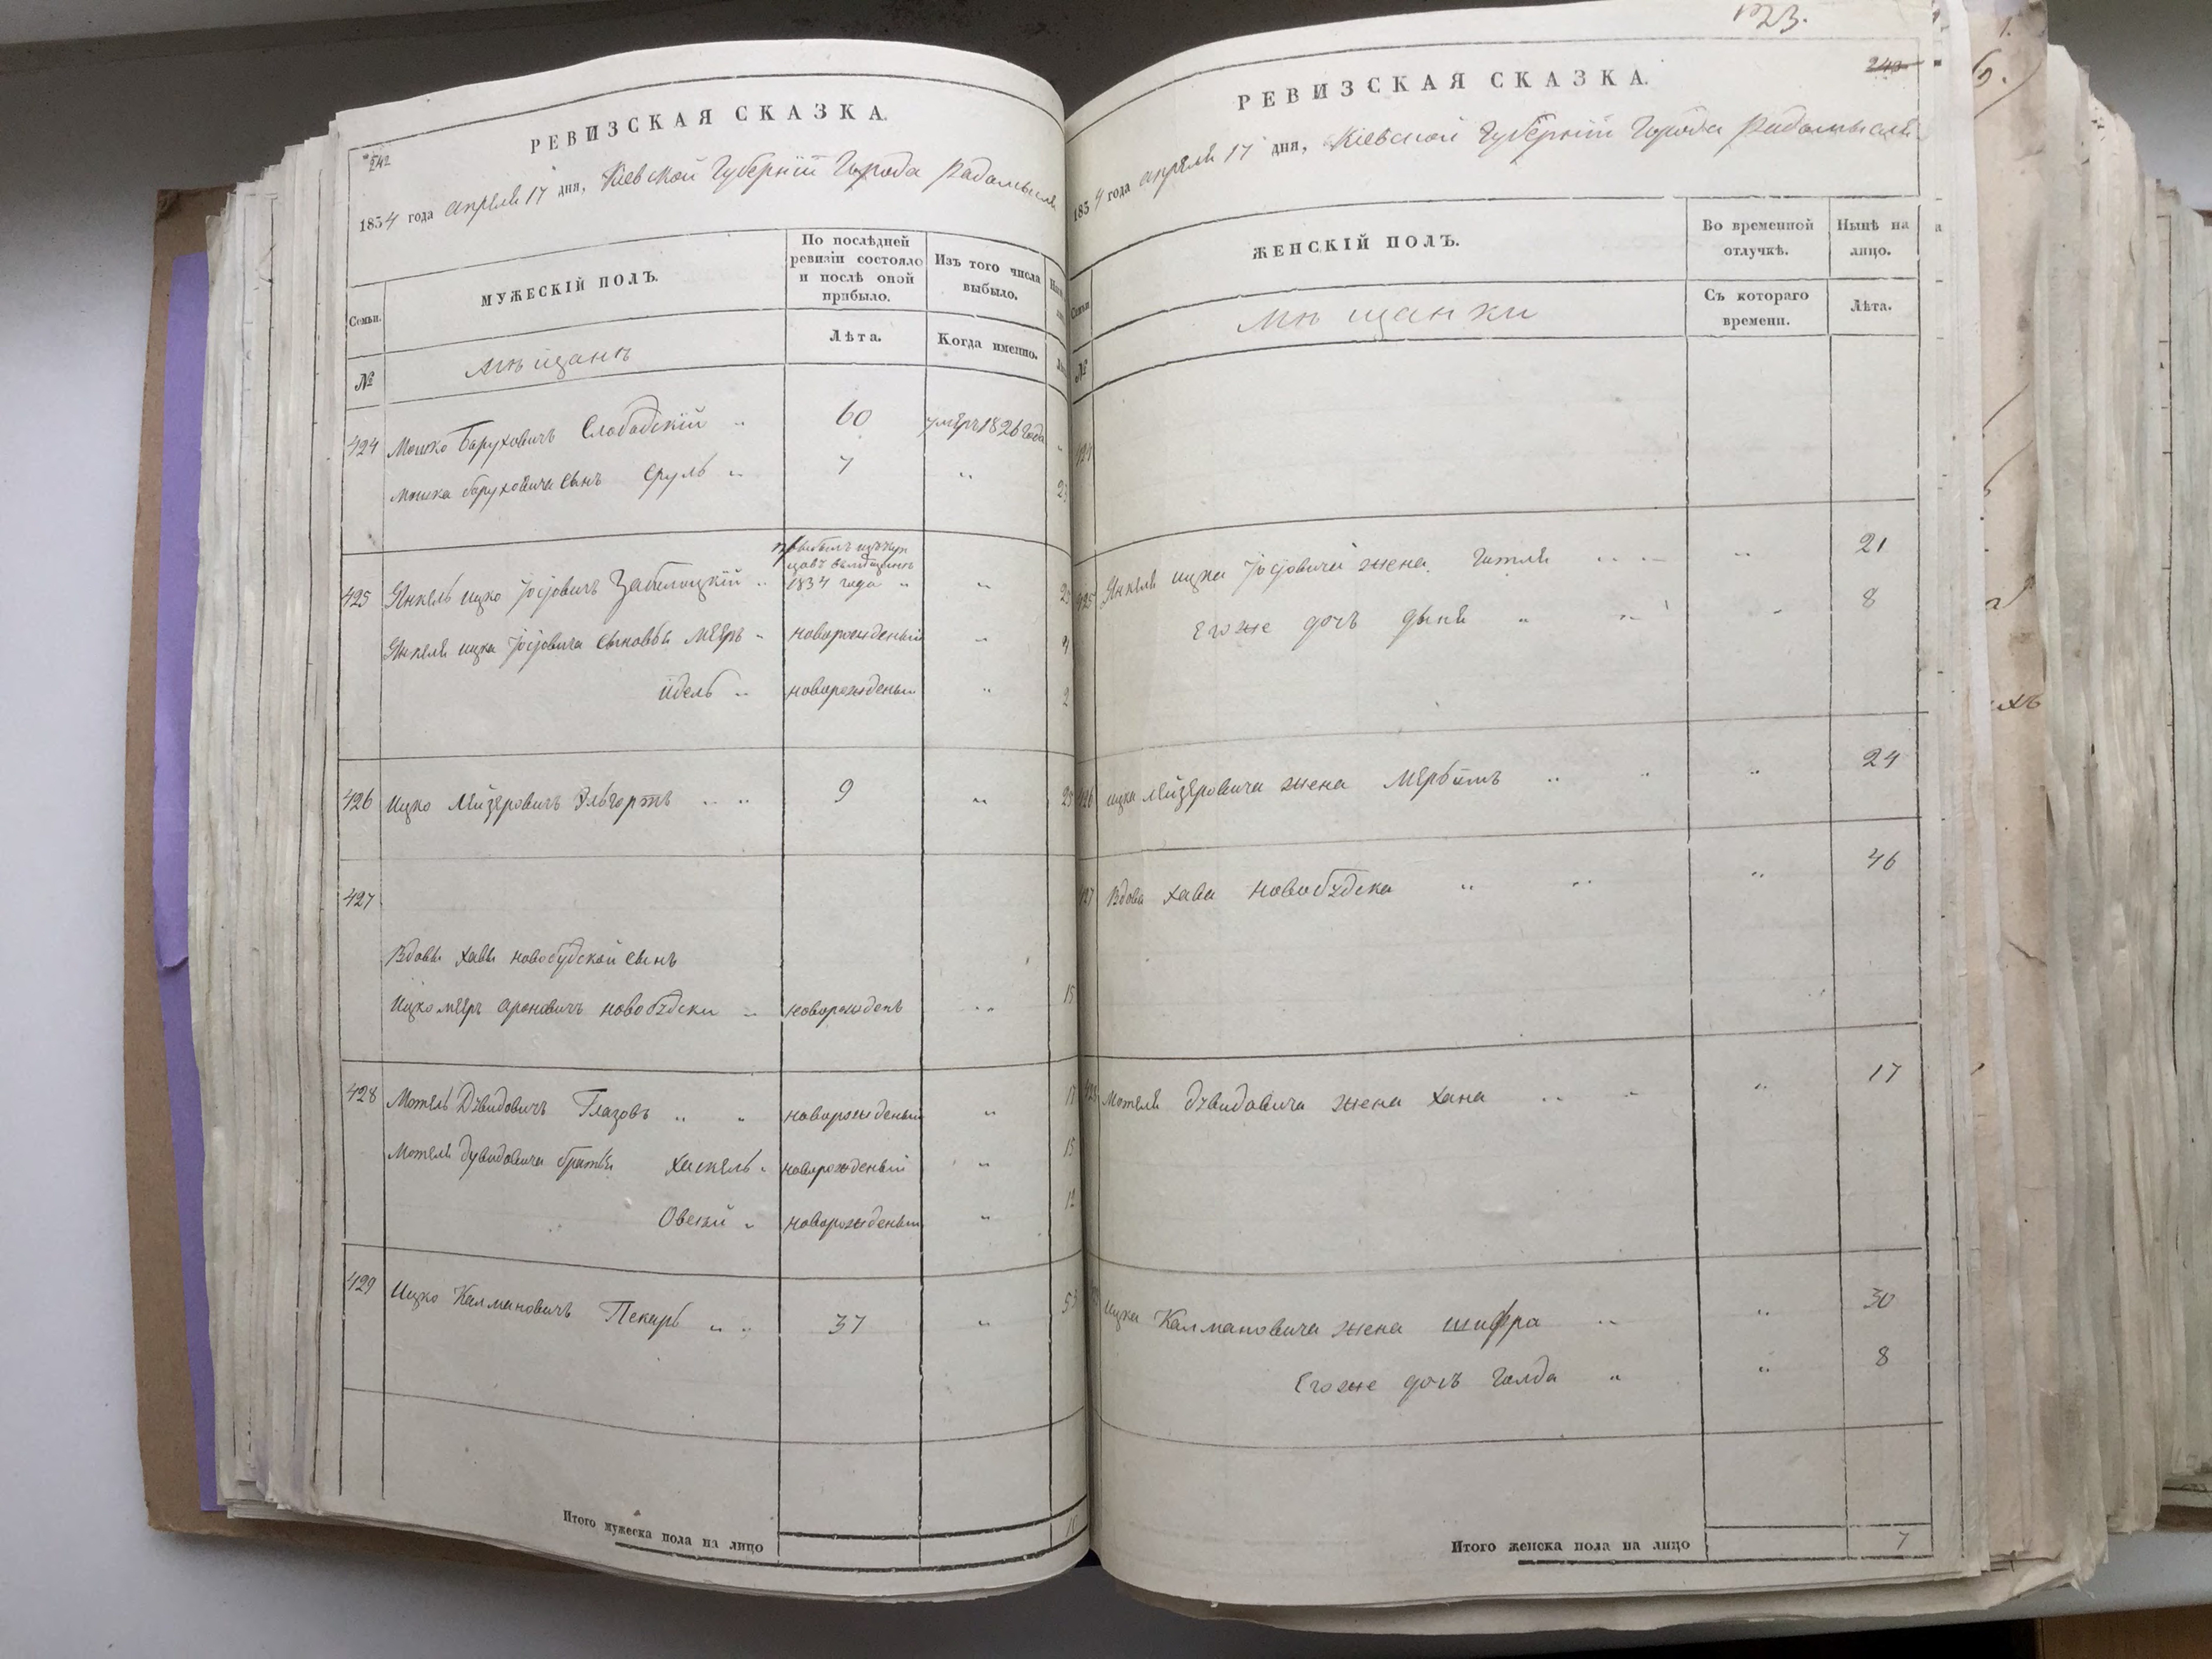 242
РЕВИЗСКАЯ СКАЗКА.
1834 года апреля 17 дня, Кіевской Губерніи Города Радомысля
Семьи.
МУЖЕСКІЙ ПОЛЪ.
По послѣдней ревизіи состояло и послѣ оной прибыло.
Изъ того числа выбыло.
№
мѣщанѣ
Лѣта.
Когда именно.
424 Мошко Баруховичъ Слободскій 60 умеръ 1826 года
Мошка Баруховича сынъ Сруль 7 23
425 Янкель ицко Іосіовичъ Забилоцкій 1834 года
Янкеля ицка Іосіовича сыновья Мееръ новорожденый
идель новорожденый 2
426 Ицко Лейзеровичъ Эльгортъ 9 25
427
Вдовы хавы новобудской сынъ
Ицко мееръ Ароновичъ новобудски новорожденъ 15
428 Мотель Дувидовичъ Глазовъ новорожденый 17
Мотеля дувидовича братья Хаскель новорожденый 15
Овсей новорожденый 12
429 Ицко Калмановичъ Пекарь 37 53
Итого мужеска пола на лицо 10
123.
243
РЕВИЗСКАЯ СКАЗКА.
1834 года апреля 17 дня, Кіевской Губерніи Города Радомысля
Семьи
ЖЕНСКІЙ ПОЛЪ.
Во временной отлучкѣ.
Нынѣ на лицо.
№
мѣщанки
Съ котораго времени.
Лѣта.
424
425 Янкеля ицка Іосіовича жена Гитля 21
Его же дочь дыня 8
426 ицка Лейзеровича жена Мерьямъ 24
427 Вдова хава новобудска 46
428 Мотеля дувидовича жена хана 17
ицка Калмановича жена шифра 30
Его же дочь Голда 8
Итого женска пола на лицо 7